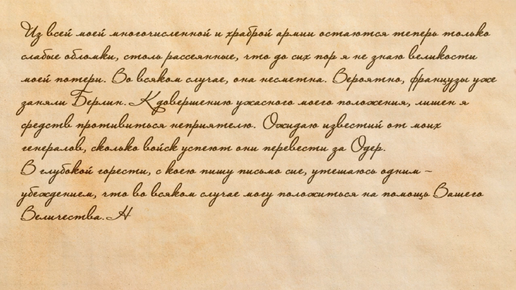 Из всей моей многочисленной и храброй армии остаются теперь только
слабые обломки, столь рассеянные, что до сих пор я не знаю великости
моей потери. Во всяком случае, она несметна. Вероятно, французы уже
заняли Берлин. К довершению ужасного моего положения, лишен я
средств противиться неприятелю. Ожидаю известий от моих
генералов, сколько войск успеют они перевести за Одер.
В глубокой горести, с коею пишу письмо сие, утешаюсь одним –
убеждением, что во всяком случае могу положиться на помощь Вашего
Величества. Н